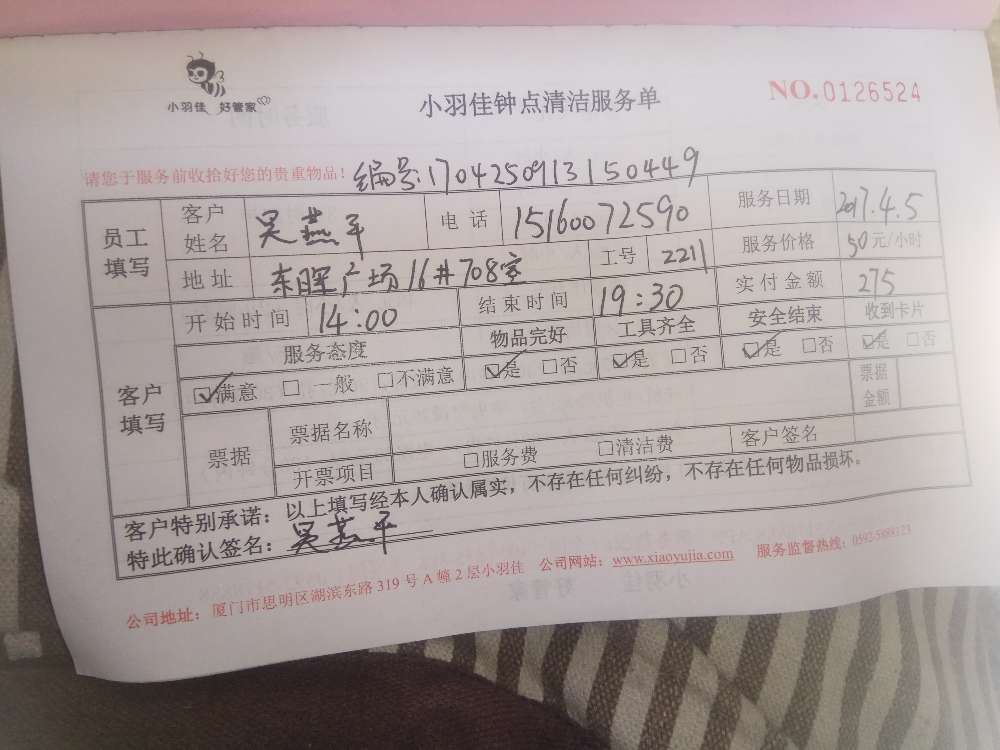 小羽佳 好管家
小羽佳钟点清洁服务单
NO.0126524
请您于服务前收拾好您的贵重物品！ 编号:1704250913150449
员工填写 客户姓名 吴燕平 电话 15160072590 服务日期 2017.4.5
地址 东晖广场16#708室 工号 2211 服务价格 50元/小时
客户填写 开始时间 14:00 结束时间 19:30 实付金额 275
服务态度 物品完好 工具齐全 安全结束 收到卡片
☑满意 □一般 □不满意 ☑是 □否 ☑是 □否 ☑是 □否 ☑是 □否
票据 票据名称 票据金额
开票项目 □服务费 □清洁费 客户签名
客户特别承诺：以上填写经本人确认属实，不存在任何纠纷，不存在任何物品损坏。
特此确认签名：吴燕平
公司地址：厦门市思明区湖滨东路319号A幢2层小羽佳 公司网站：www.xiaoyujia.com 服务监督热线：